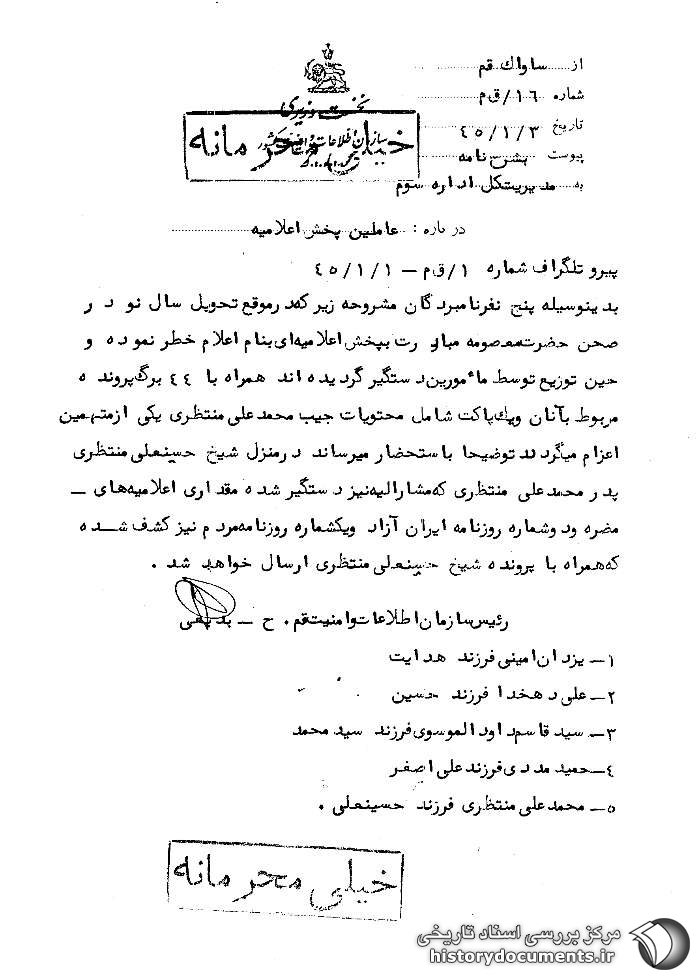 از ساواك قم
شماره ۱۶/ق م
تاریخ ۴۵/۱/۳
پیوست بشرح نامه
به مدیریتکل اداره سوم
نخست وزیری
سازمان اطلاعات و امنیت کشور
خیلی محرمانه
درباره : عاملین پخش اعلامیه
پیرو تلگراف شماره ۱/ق م – ۴۵/۱/۱
بدینوسیله پنج نفر نامبردگان مشروحه زیر که در موقع تحویل سال نو در
صحن حضرت معصومه مبادرت بپخش اعلامیه‌ای بنام اعلام خطر نموده و
حین توزیع توسط مأمورین دستگیر گردیده اند همراه با ۴۴ برگ پرونده
مربوط بآنان ویك پاکت شامل محتویات جیب محمدعلی منتظری یکی ازمتهمین
اعزام میگردند توضیحا باستحضار میرساند درمنزل شیخ حسینعلی منتظری
پدر محمدعلی منتظری که مشارالیه نیز دستگیر شده مقداری اعلامیه‌های –
مضره ودو شماره روزنامه ایران آزاد ویکشماره روزنامه مردم نیز کشف شده
که همراه با پرونده شیخ حسینعلی منتظری ارسال خواهد شد .
رئیس سازمان اطلاعات وامنیت قم . ح – بدیهی
۱– یزدان امینی فرزند هدایت
۲– علی دهخدا فرزند حسین
۳– سید قاسم داودالموسوی فرزند سید محمد
۴– حمید مددی فرزند علی اصغر
۵– محمدعلی منتظری فرزند حسینعلی .
خیلی محرمانه
مرکز بررسی اسناد تاریخی
historydocuments.ir